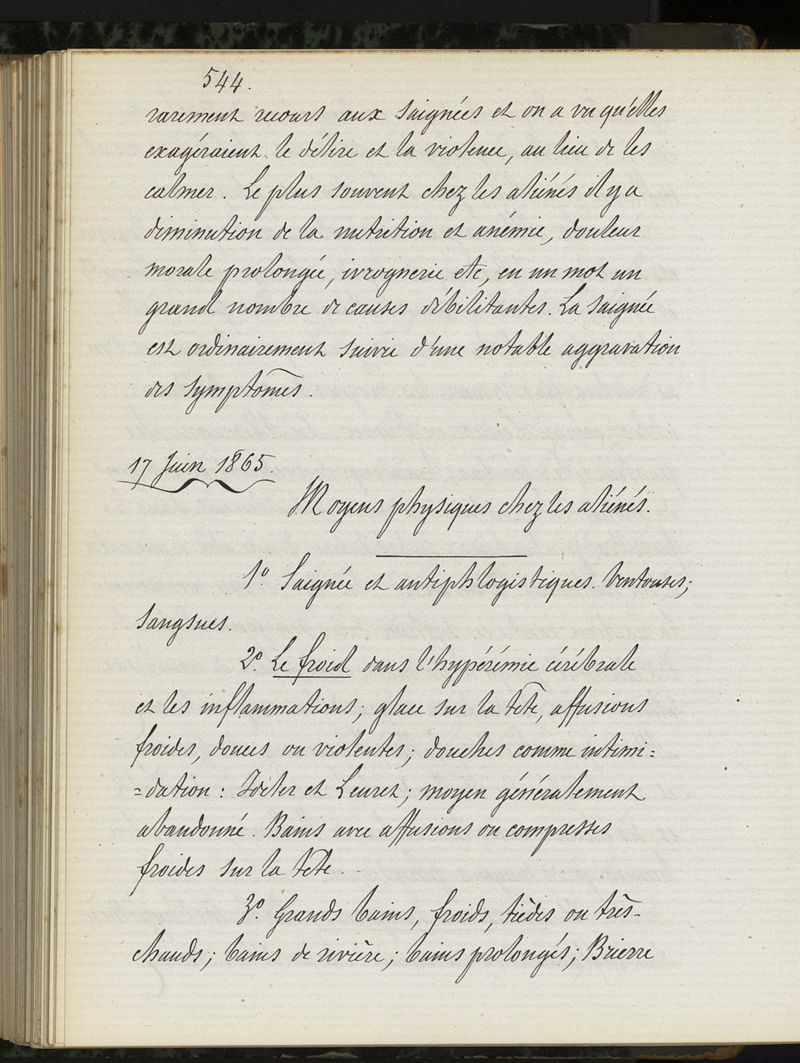 544.
rarement recours aux saignées et on a vu qu'elles
exagéraient le délire et la violence, au lieu de les
calmer. Le plus souvent chez les aliénés il y a
diminution de la nutrition et anémie, douleur
morale prolongée, ivrognerie etc, en un mot un
grand nombre de causes débilitantes. La saignée
est ordinairement suivie d'une notable aggravation
des symptomes.
17 Juin 1865.
Moyens physiques chez les aliénés.
1º Saignée et antiphlogistiques. Ventouses;
sangsues.
2º. Le froid dans l'hypérémie cérébrale
et les inflammations; glace sur la tête, affusions
froides, douces ou violentes; douches comme intimi=
=dation: Ideler et Leuret; moyen généralement
abandonné. Bains avec affusions ou compresses
froides sur la tête.
3º. Grands bains, froids, tièdes ou très-
chauds; bains de rivière; bains prolongés; Brierre